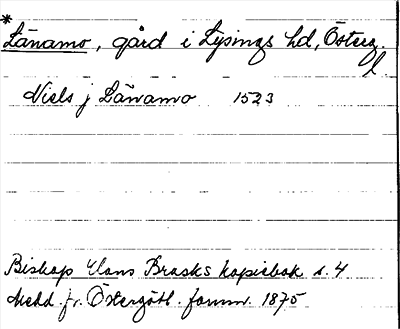 *
Länamo, gård i Lysings hd, Österg.
l.
Niels j Länamo 1523
Biskop Hans Brasks kopiebok s. 4
Medd. fr. Östergötl. fornm. 1875